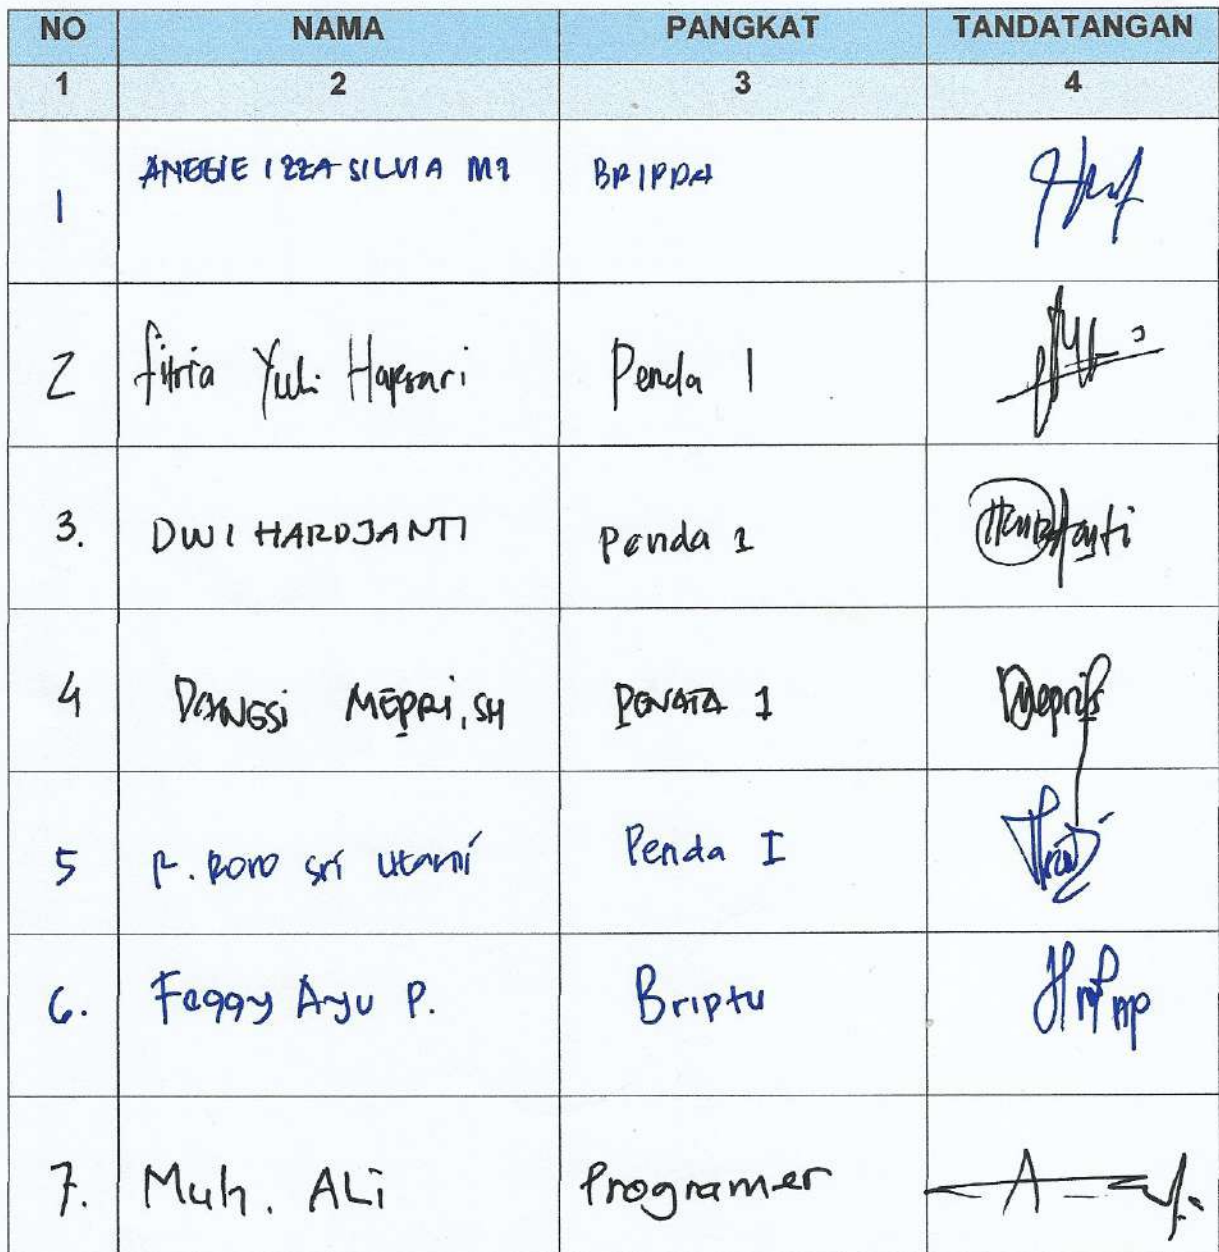 NO NAMA PANGKAT TANDATANGAN
1 2 3 4
1 ANGGIE IZZA SILVIA MZ BRIPDA
2 Fitria Yuli Hapsari Penda 1
3. DWI HARDJANTI Penda 1
4 DANGSI MEPRI, SH PENATA 1
5 R. Roro Sri Utami Penda I
6. Feggy Ayu P. Briptu
7. Muh. ALi Programer